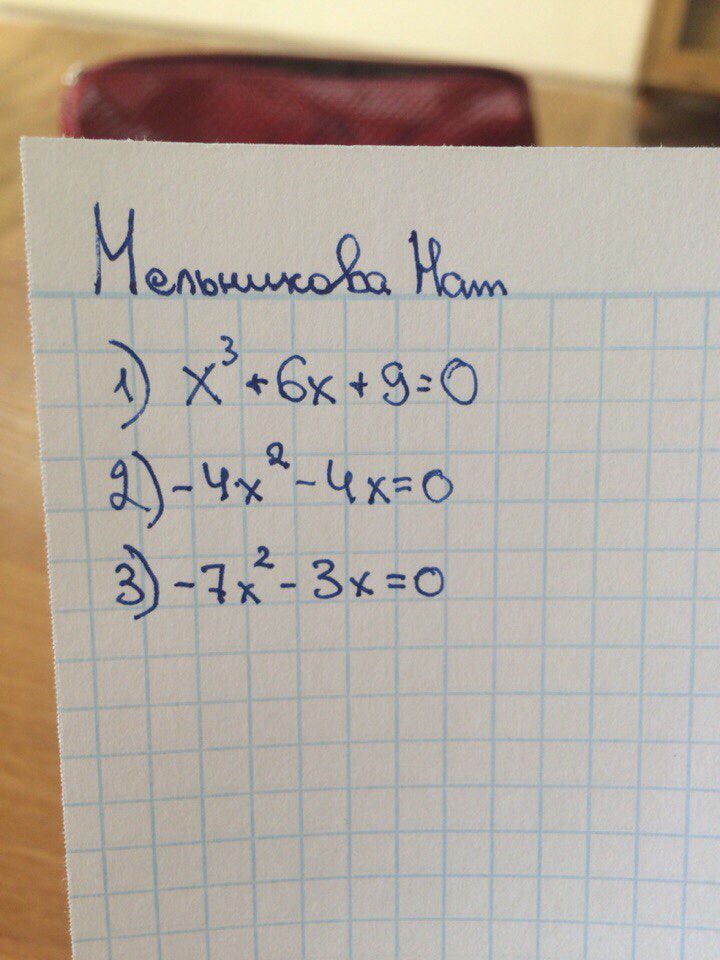 Мельникова Нат
1) x³+6x+9=0
2) -4x²-4x=0
3) -7x²-3x=0